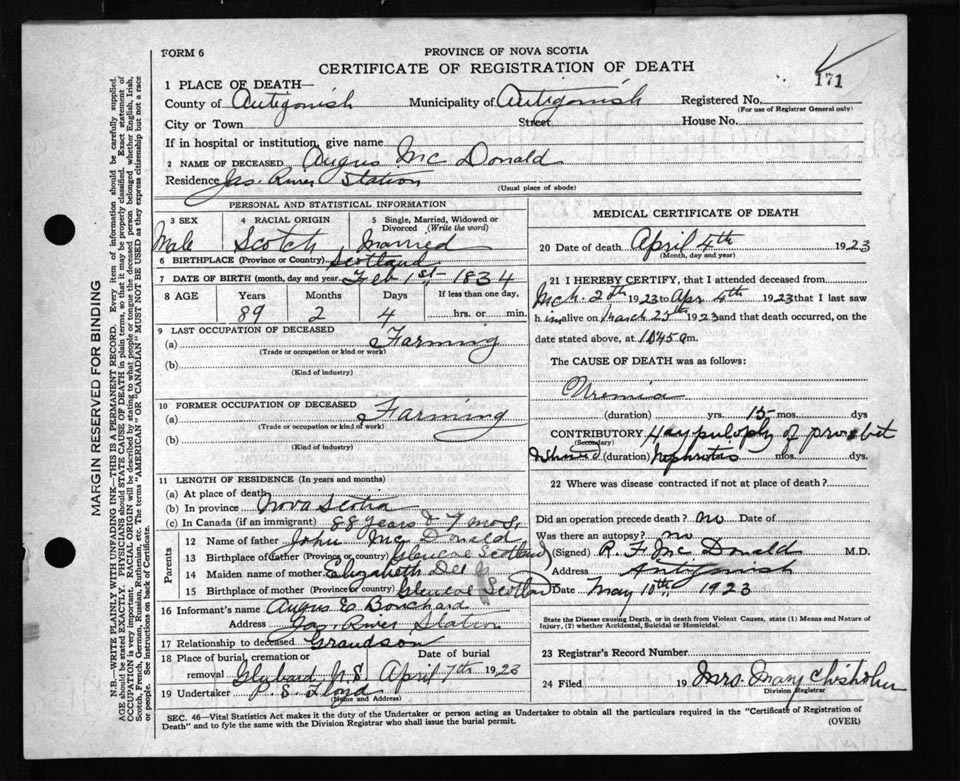 FORM 6
PROVINCE OF NOVA SCOTIA
CERTIFICATE OF REGISTRATION OF DEATH
171
1 PLACE OF DEATH—
County of Antigonish Municipality of Antigonish Registered No.
(For use of Registrar General only)
City or Town Street House No.
If in hospital or institution, give name
2 NAME OF DECEASED Angus Mc Donald
Residence Jas. River Station
(Usual place of abode)
PERSONAL AND STATISTICAL INFORMATION
3 SEX 4 RACIAL ORIGIN 5 Single, Married, Widowed or Divorced (Write the word)
Male Scotch Married
6 BIRTHPLACE (Province or Country) Scotland
7 DATE OF BIRTH (month, day and year) Feb 1st 1834
8 AGE Years Months Days If less than one day,
89 2 4 hrs. or min.
9 LAST OCCUPATION OF DECEASED
(a) Farming
(Trade or occupation or kind or work)
(b)
(Kind of industry)
10 FORMER OCCUPATION OF DECEASED
(a) Farming
(Trade or occupation or kind of work)
(b)
(Kind of industry)
11 LENGTH OF RESIDENCE (In years and months)
(a) At place of death
(b) In province Nova Scotia
(c) In Canada (if an immigrant) 88 years & 7 mos.
Parents
12 Name of father John Mc Donald
13 Birthplace of father (Province or country) Glencoe Scotland
14 Maiden name of mother Elizabeth
15 Birthplace of mother (Province or country) Glencoe Scotland
16 Informant's name Angus E Bouchard
Address Jas. River Station
17 Relationship to deceased Grandson
18 Place of burial, cremation or Date of burial
removal N.S. April 7th 1923
19 Undertaker P. S. Floyd
(Name and Address)
MEDICAL CERTIFICATE OF DEATH
20 Date of death April 4th 1923
(Month, day and year)
21 I HEREBY CERTIFY, that I attended deceased from
Mch. 2th 1923 to Apr 4th 1923 that I last saw
h im alive on March 25th 1923 and that death occurred, on the
date stated above, at m.
The CAUSE OF DEATH was as follows:
Uremia
(duration) yrs. 15 mos. dys
CONTRIBUTORY of
(Secondary)
(duration) mos. dys.
22 Where was disease contracted if not at place of death?
Did an operation precede death? no Date of
Was there an autopsy? no
(Signed) R. F. Mc Donald M.D.
Address Antigonish
Date May 10th 1923
State the Disease causing Death, or in death from Violent Causes, state (1) Means and Nature of
Injury, (2) whether Accidental, Suicidal or Homicidal.
23 Registrar's Record Number
24 Filed 19 Mrs. Mary Chisholm
Division Registrar
SEC. 46—Vital Statistics Act makes it the duty of the Undertaker or person acting as Undertaker to obtain all the particulars required in the "Certificate of Registration of
Death" and to fyle the same with the Division Registrar who shall issue the burial permit.
(OVER)
MARGIN RESERVED FOR BINDING
N.B.—WRITE PLAINLY WITH UNFADING INK—THIS IS A PERMANENT RECORD. Every item of information should be carefully supplied.
AGE should be stated EXACTLY. PHYSICIANS should STATE CAUSE OF DEATH in plain terms, so that it may be properly classified. Exact statement of
OCCUPATION is very important. RACIAL ORIGIN will be described by stating to what people or tongue the deceased person belonged whether English, Irish,
Scotch, French, German, Russian, Ruthenian, etc. The terms "AMERICAN" OR "CANADIAN" MUST NOT BE USED as they express citizenship but not a race
or people. See instructions on back of Certificate.